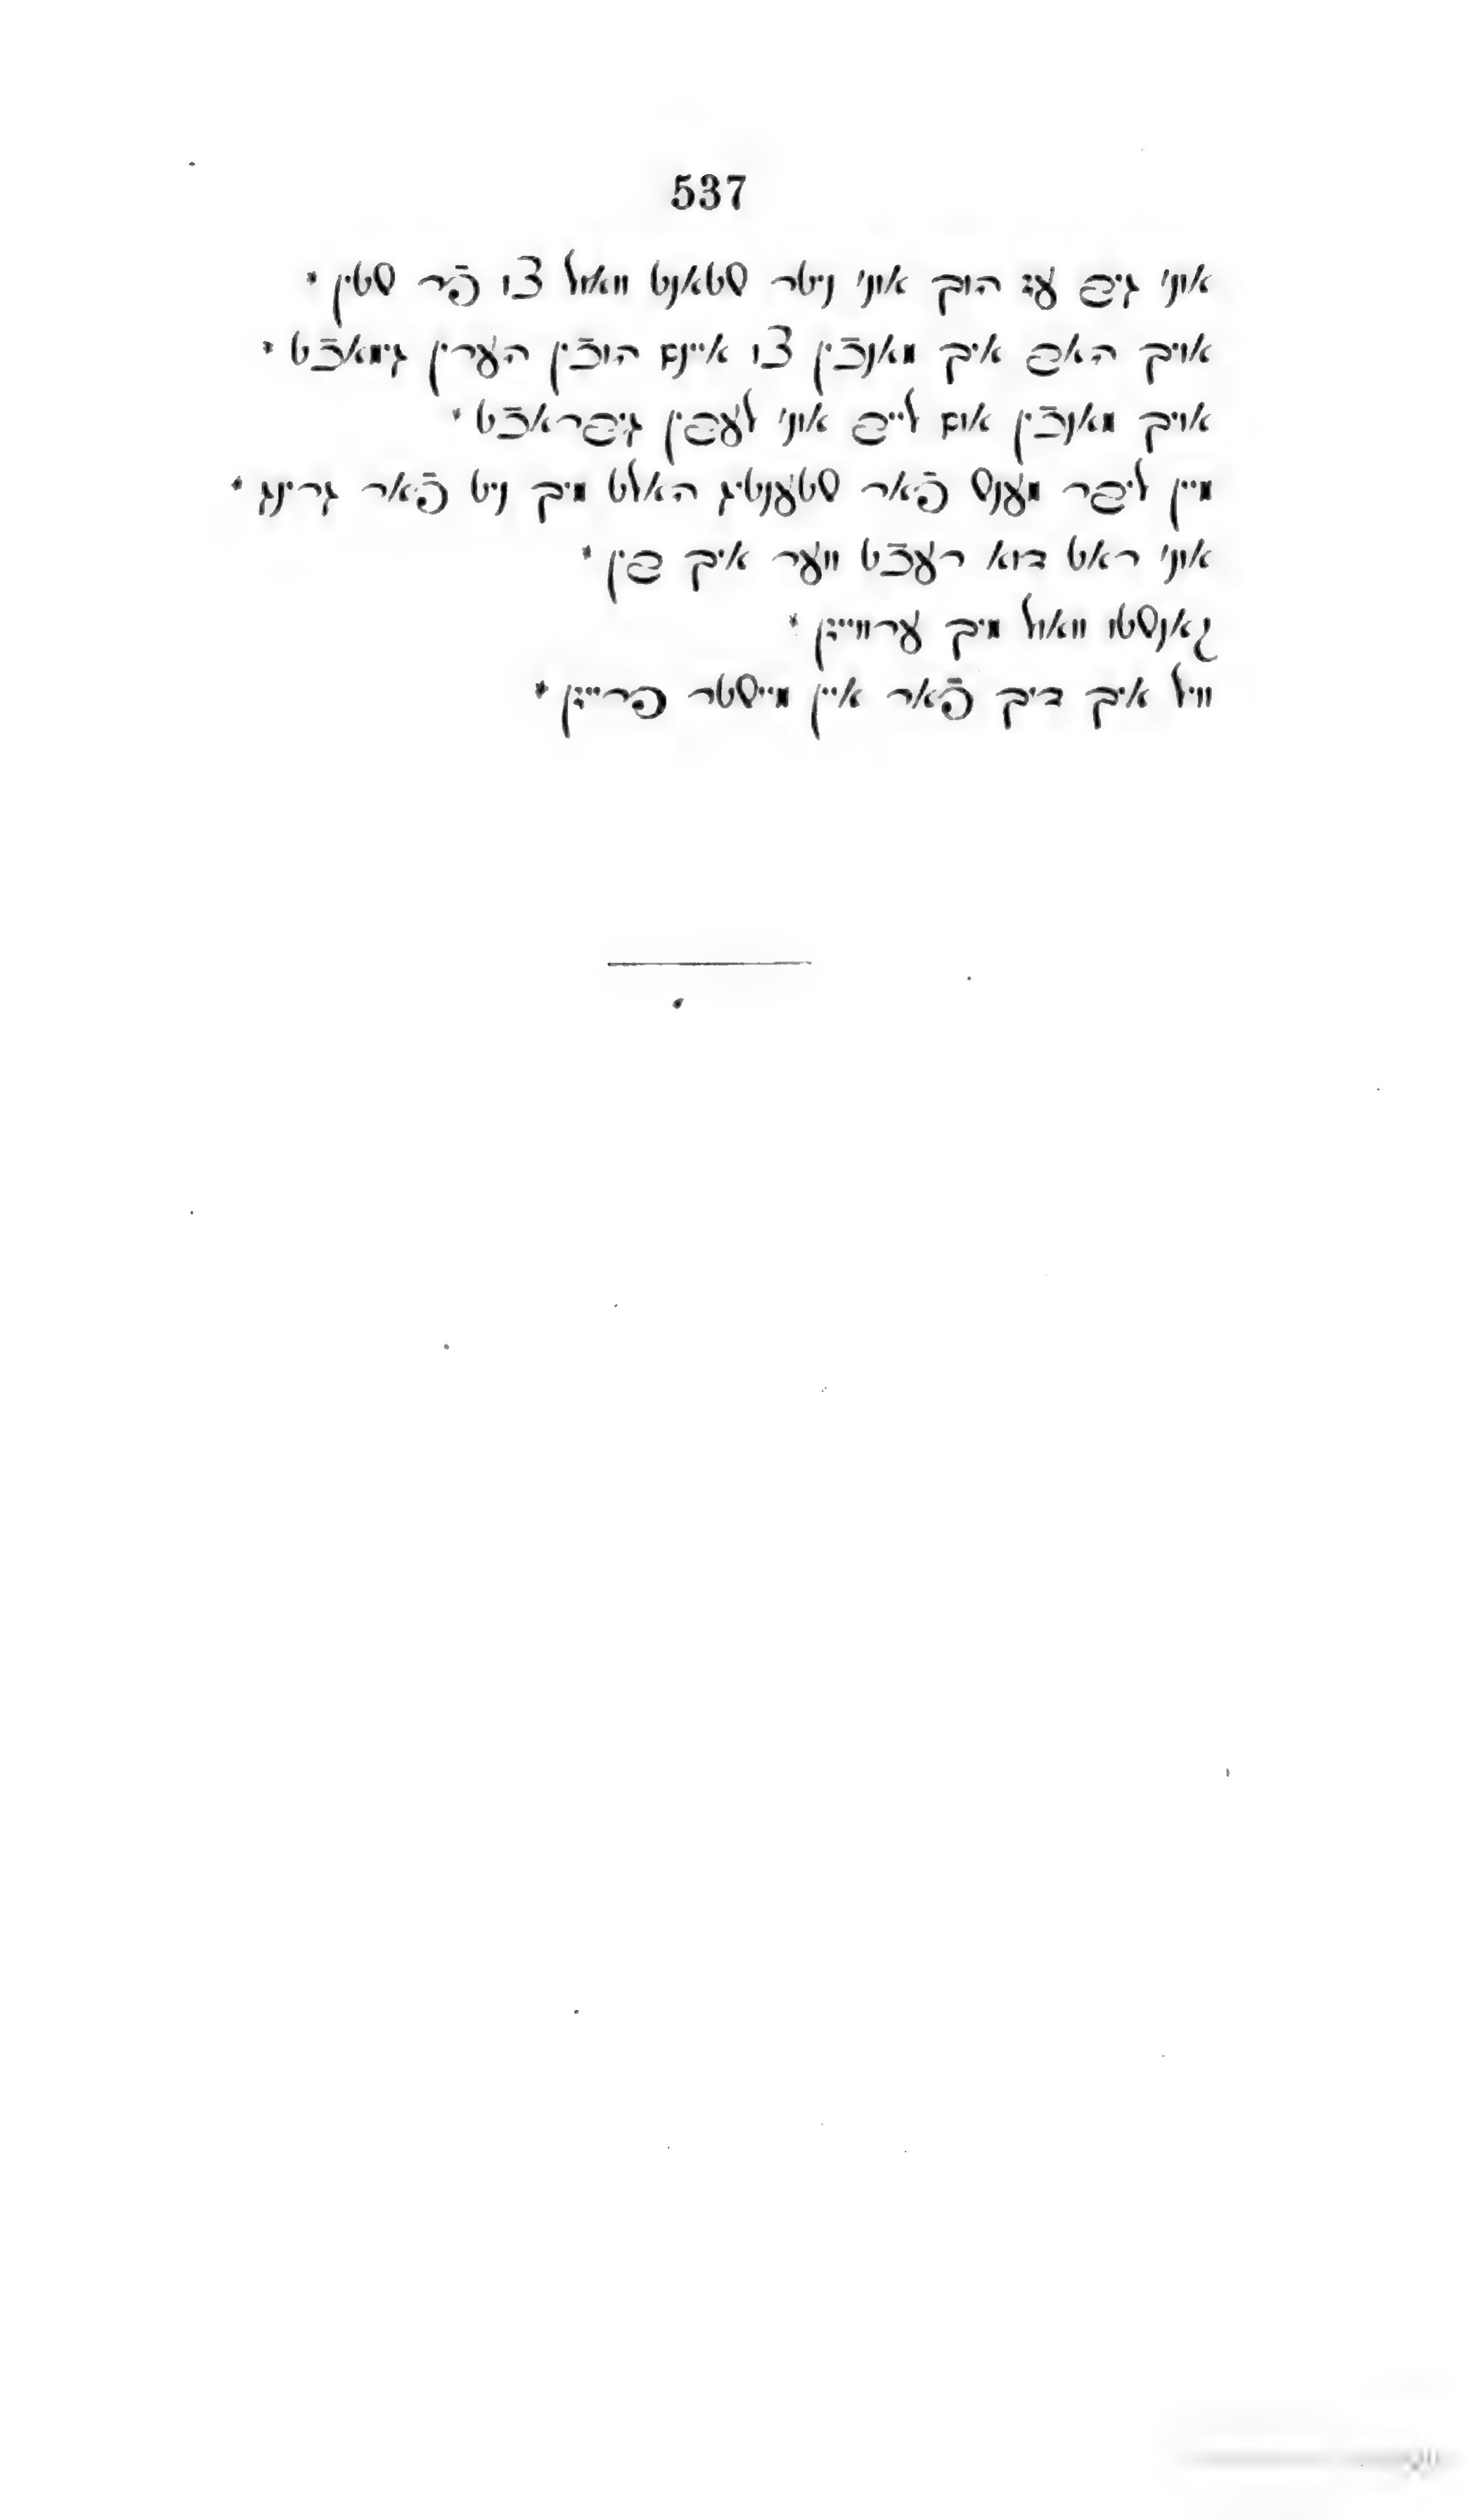 537
אונ׳ גיב עז הוך אונ׳ ניטר שטאנט וואול צו פֿר שטין *
אויך האב איך מאנכֿין צו איינם הוכֿין הערין גימאכֿט *
אויך מאנכֿין אום לייב אונ׳ לעבין גיבראכֿט *
מיין ליבר מענש פֿאר שטענטיג האלט מיך ניט פֿאר גרינג *
אונ׳ ראט דוא רעכֿט ווער איך בין *
קאנשטו וואול מיך ערווייזן *
וויל איך דיך פֿאר איין מיישטר פרייזן *